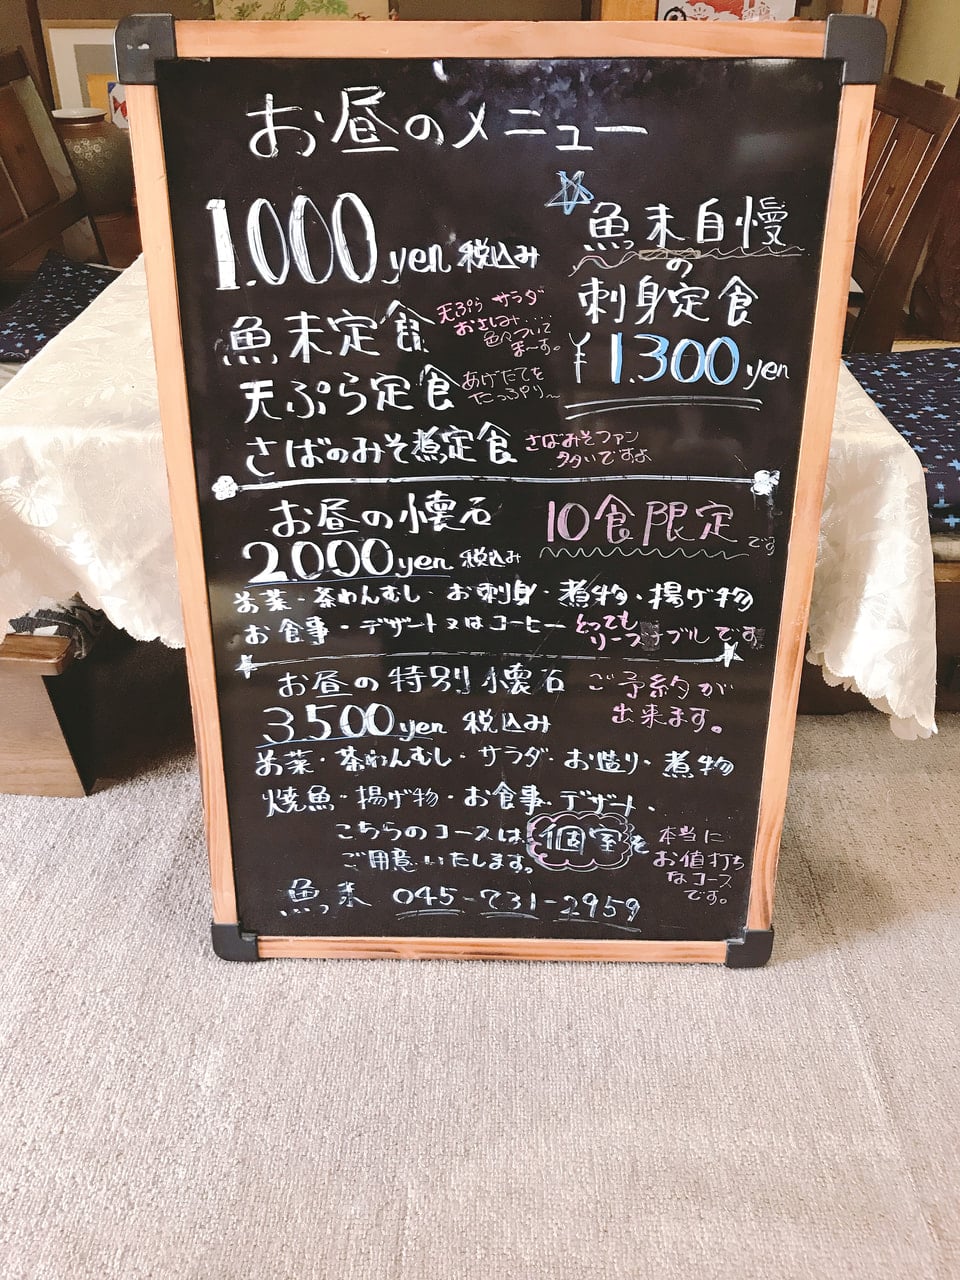 お昼のメニュー
1.000yen 税込み
魚末定食
天ぷら サラダ
おさしみ....
色々ついて
ま〜す。
天ぷら定食
あげたてを
たっぷり〜
さばのみそ煮定食
さばみそファン
多いですよ
☆魚っ末自慢
の
刺身定食
¥1.300yen
お昼の懐石
10食限定です
2.000yen 税込み
お菜・茶わんむし・お刺身・煮物・揚げ物
お食事・デザート又はコーヒー とっても
リーズナブルです
お昼の特別懐石
ご予約が
出来ます。
3500yen 税込み
お菜・茶わんむし・サラダ・お造り・煮物
焼魚・揚げ物・お食事・デザート・
こちらのコースは、個室を
ご用意いたします。
本当に
お値打ち
なコース
です。
魚っ末 045-731-2959